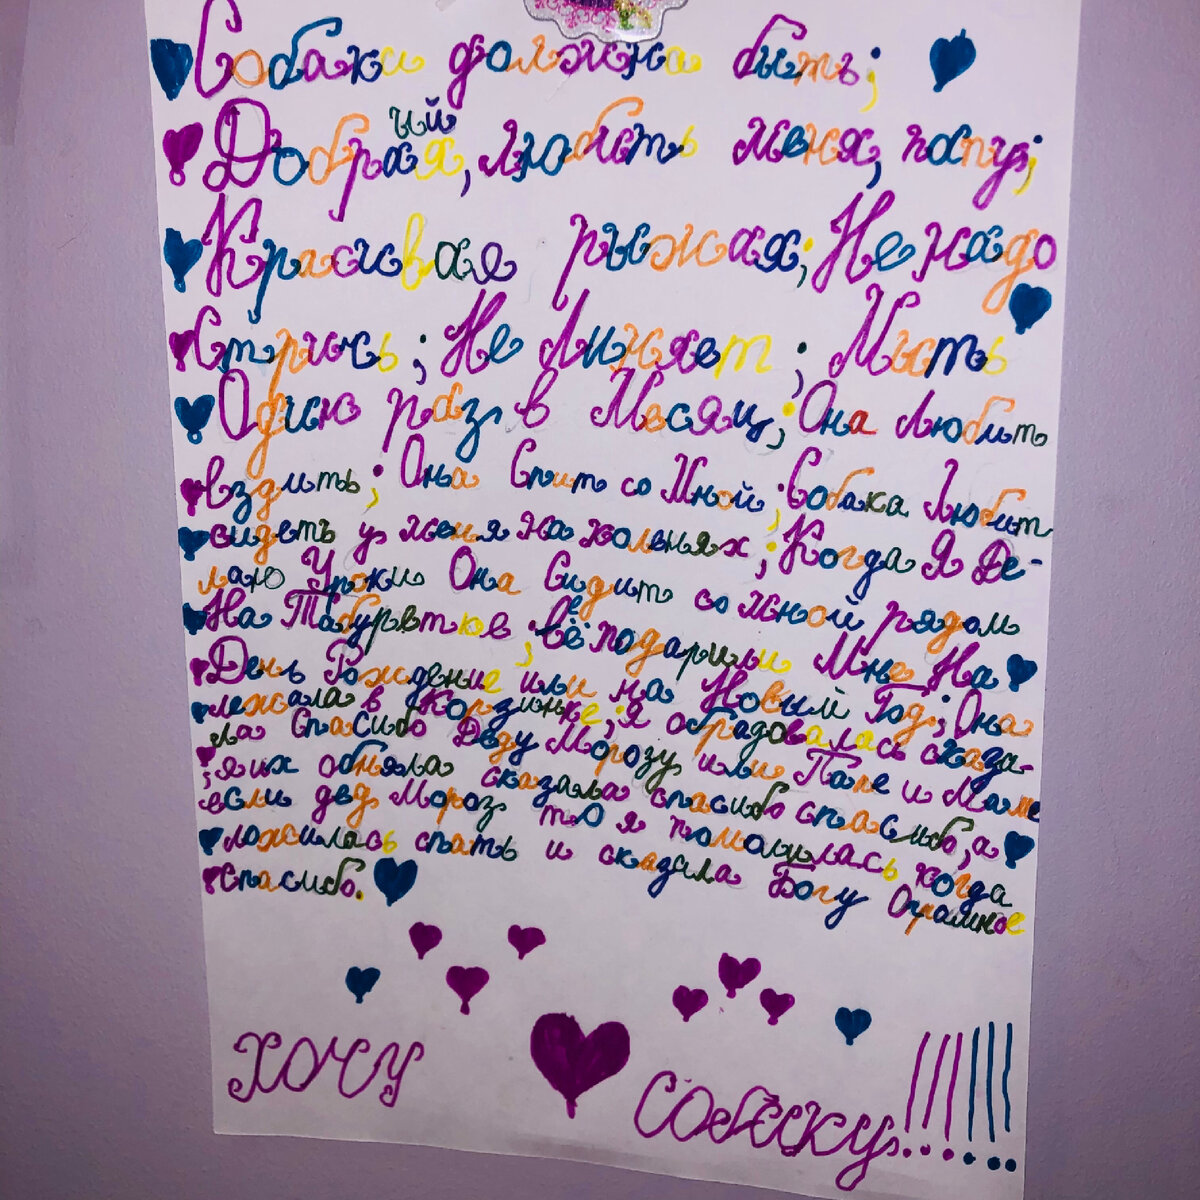 Собака должна быть;
Добрая, ый любить меня, папу;
Красивая рыжая; Не надо
Стричь; Не Линяет; Мыть
Один раз в Месяц; Она Любит
ездить; Она Спит со Мной; Собака Любит
сидеть у меня на коленях; Когда Я Де-
лаю Уроки Она Сидит со мной рядом
На Табуретке; Её подарили Мне На
День Рождение или на Новый Год; Она
лежала в Корзинке; я обрадовалась сказа-
ла Спасибо Деду Морозу или Папе и Маме
; я их обняла сказала спасибо спасибо, а
если дед Мороз то я помолилась когда
ложилась спать и сказала Богу Огромное
Спасибо.
хочу
собаку!!!!!!